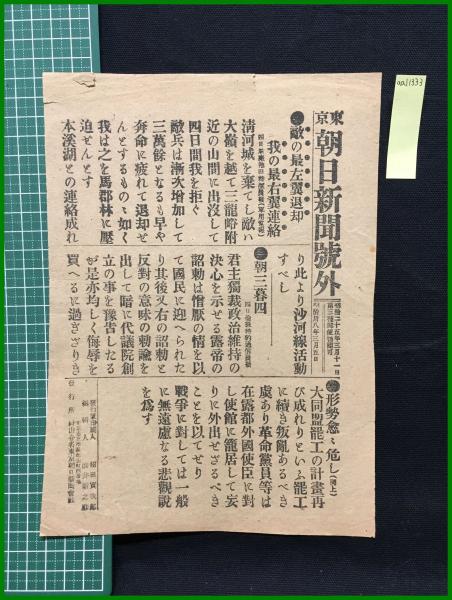 op11333
東京朝日新聞號外
明治二十五年三月十一日
第三種郵便物認可
明治卅八年三月五日
敵の最左翼退却
我の最右翼連絡
清河城を棄てし敵ハ
大嶺を越て三龍峪附
近の山間に出沒して
四日間我を拒ぐ
敵兵は漸次增加して
三萬餘となるも早や
奔命に疲れて退却せ
んとするもの〻如く
我は之を馬郡林に壓
迫せんとす
本溪湖との連絡成れ
り此より沙河線活動
すべし
朝三暮四
君主獨裁政治維持の
決心を示せる露帝の
詔勅は憎厭の情を以
て國民に迎へられた
り其後又右の詔勅と
反對の意味の勅諭を
出して暗に代議院創
立の事を豫告したる
が是亦均しく侮辱を
買へるに過ぎざりき
形勢愈〻危し(同上)
大同盟罷工の計畫再
び成れりといふ罷工
に續き叛亂あるべき
虞あり革命黨員等は
在露都外國使臣に對
し使館に籠居して妄
りに外出せざるべき
ことを以てせり
戰爭に對しては一般
に無遠慮なる悲觀説
を爲す